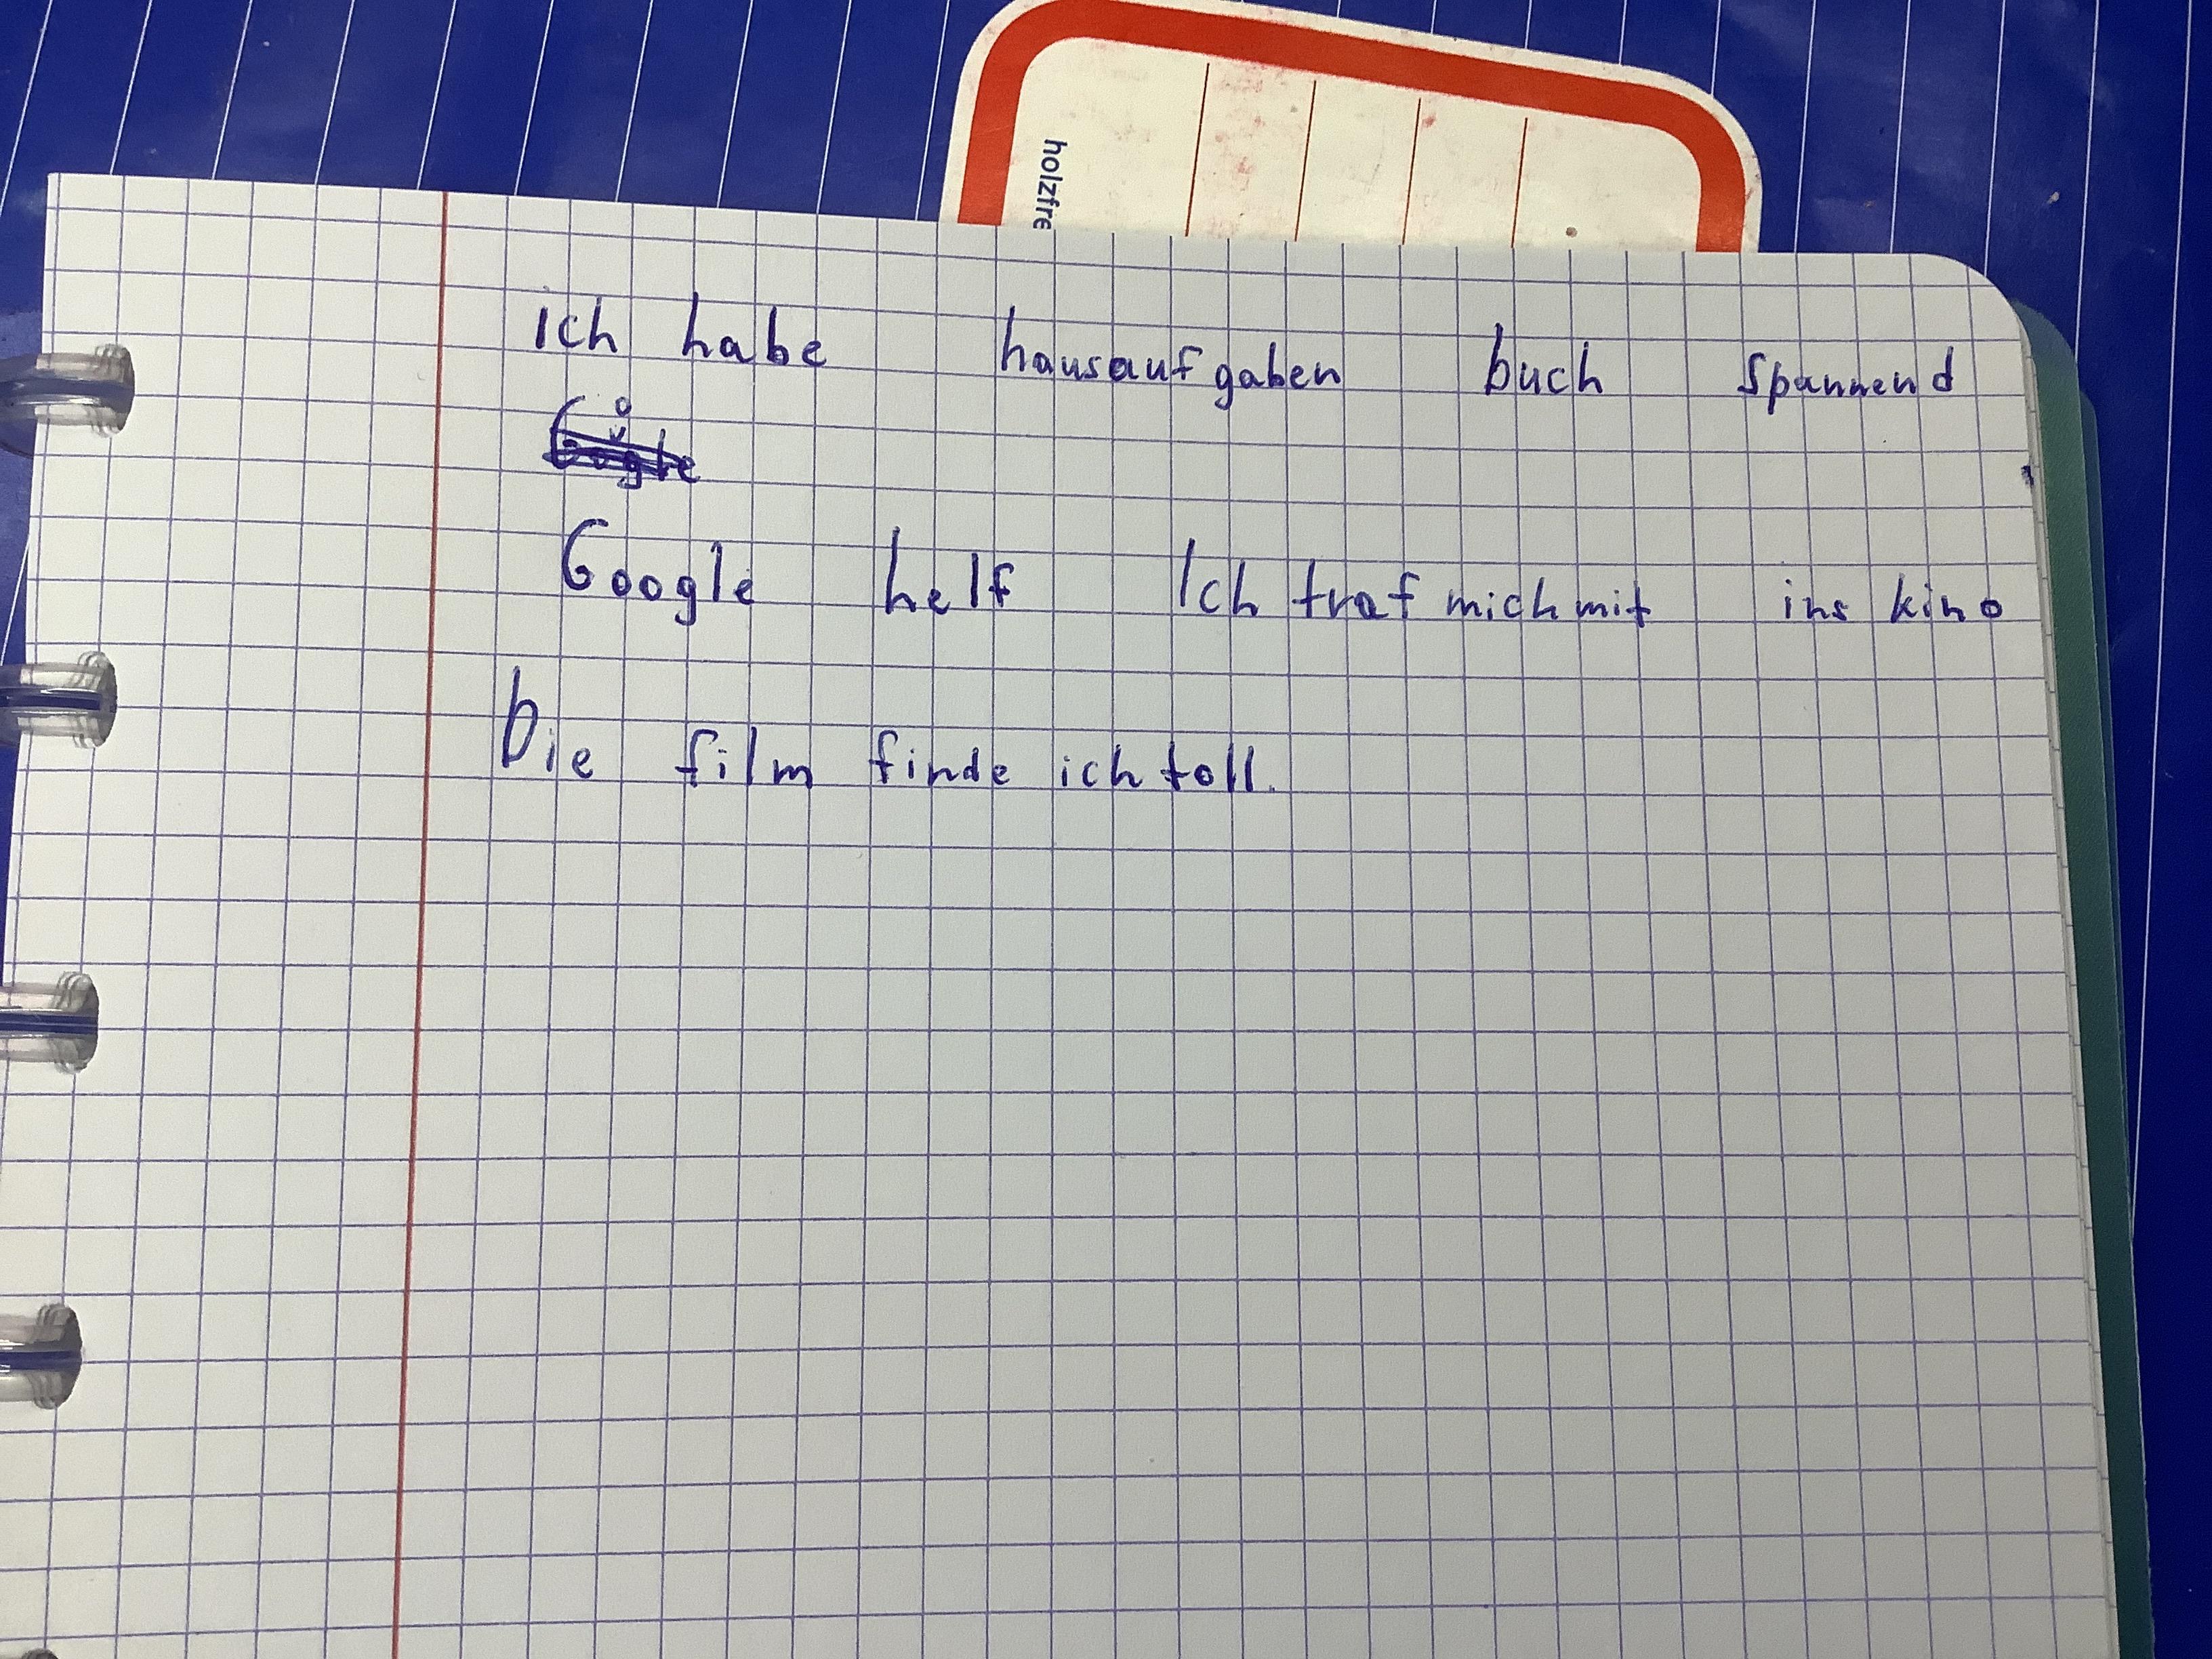 holzfre
ich habe hausaufgaben buch spannend
Google
Google helf Ich traf mich mit ins kino
Die film finde ich toll.